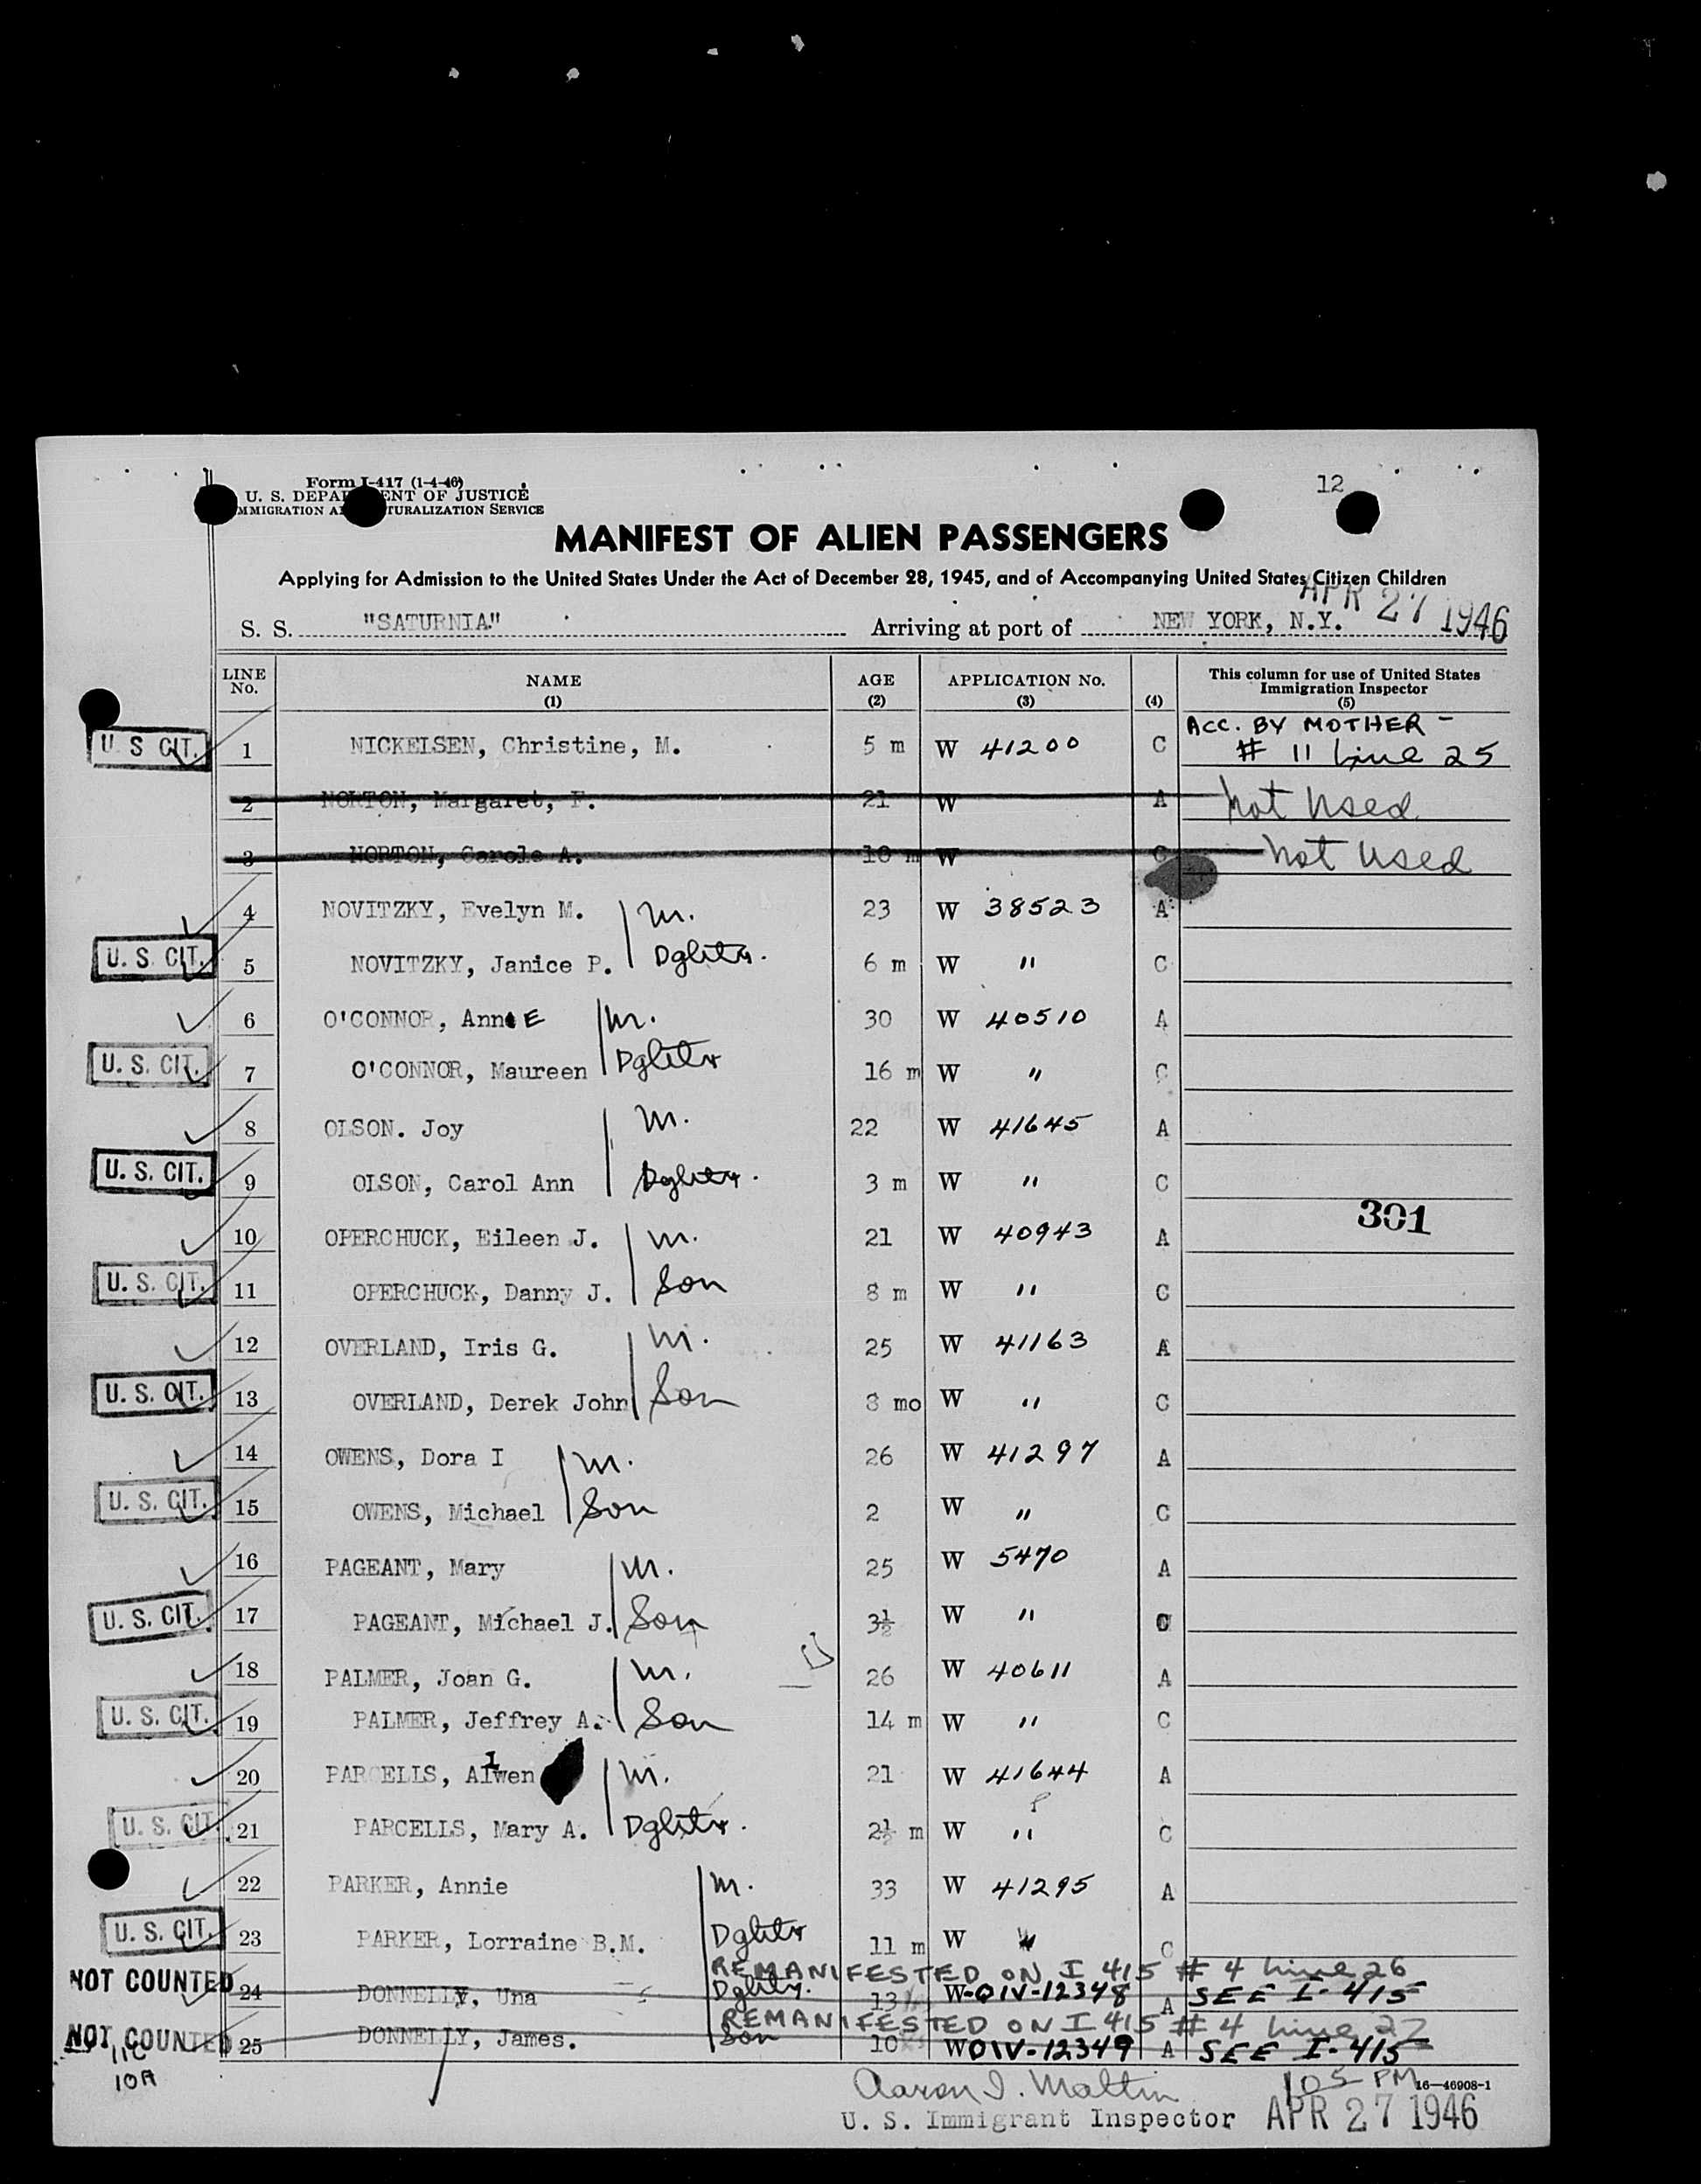 12
Form I-417 (1-4-46)
U. S. DEPA ENT OF JUSTICE
MMIGRATION A TURALIZATION SERVICE
MANIFEST OF ALIEN PASSENGERS
Applying for Admission to the United States Under the Act of December 28, 1945, and of Accompanying United States Citizen Children
APR 27 1946
S. S. "SATURNIA" Arriving at port of NEW YORK, N.Y.
LINE No. NAME (1) AGE (2) APPLICATION No. (3) (4) This column for use of United States Immigration Inspector (5)
ACC. BY MOTHER -
U S CIT. 1 NICKELSEN, Christine, M. 5 m W 41200 C # 11 Line 25
2 NORTON, Margaret, F. 21 W A not used
3 NORTON, Carole A. 10 m W C not used
4 NOVITZKY, Evelyn M. m. 23 W 38523 A
U. S. CIT. 5 NOVITZKY, Janice P. Dghtr. 6 m W " C
6 O'CONNOR, Ann E m. 30 W 40510 A
U. S. CIT. 7 O'CONNOR, Maureen Dghtr 16 m W " C
8 OLSON. Joy m. 22 W 41645 A
U. S. CIT. 9 OLSON, Carol Ann Dghtr. 3 m W " C
301
10 OPERCHUCK, Eileen J. m. 21 W 40943 A
U. S. CIT. 11 OPERCHUCK, Danny J. Son 8 m W " C
12 OVERLAND, Iris G. m. 25 W 41163 A
U. S. CIT. 13 OVERLAND, Derek John Son 8 mo W " C
14 OWENS, Dora I m. 26 W 41297 A
U. S. CIT. 15 OWENS, Michael Son 2 W " C
16 PAGEANT, Mary m. 25 W 5470 A
U. S. CIT. 17 PAGEANT, Michael J. Son 3½ W " C
18 PALMER, Joan G. m. 26 W 40611 A
U. S. CIT. 19 PALMER, Jeffrey A. Son 14 m W " C
20 PARCELLS, Alwen m. 21 W 41644 A
U. S. CIT. 21 PARCELLS, Mary A. Dghtr. 2½ m W " C
22 PARKER, Annie m. 33 W 41295 A
U. S. CIT. 23 PARKER, Lorraine B.M. Dghtr 11 m W " C
REMANIFESTED ON I 415 # 4 Line 26
NOT COUNTED 24 DONNELLY, Una Dghtr. 13 W-OIV-12348 A SEE I-415
REMANIFESTED ON I 415 # 4 Line 27
NOT COUNTED 25 DONNELLY, James. Son 10 W OIV-12349 A SEE I-415
11C
10A
Aaron I. Maltin 105 PM 16—46908-1
U. S. Immigrant Inspector APR 27 1946